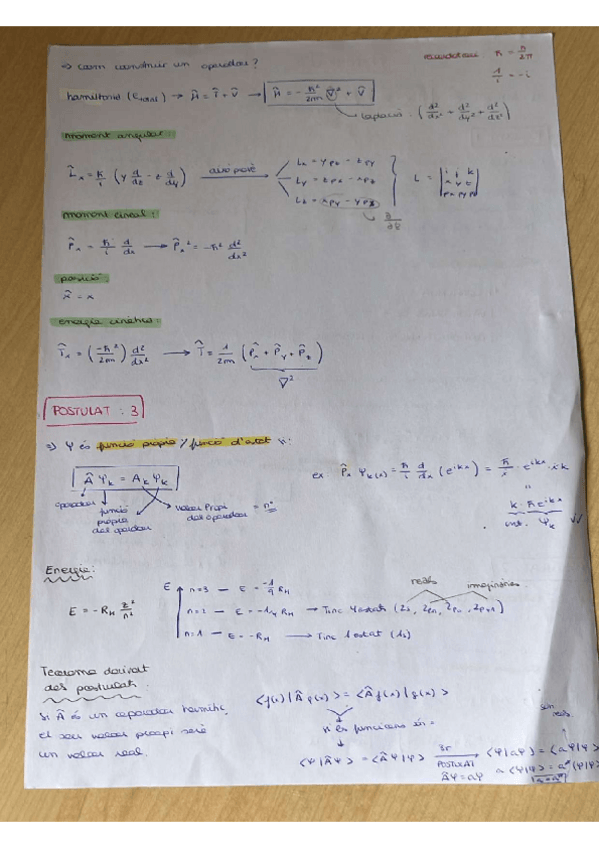 ⇒ com construir un operador?
recordatori: ħ = h/2π
1/i = -i
hamiltonià (E total) → Ĥ = T̂ + V̂ → Ĥ = -ħ²/2m ∇² + V̂
laplacià: (d²/dx² + d²/dy² + d²/dz²)
moment angular:
L̂x = ħ/i (y d/dz - z d/dy)
Lx = y pz - z py
Ly = z px - x pz
Lz = x py - y px
L = | i j k | x y z | px py pz |
moment lineal:
P̂x = ħ/i d/dx → P̂x² = -ħ² d²/dx²
posició:
x̂ = x
energia cinètica:
T̂x = (-ħ²/2m) d²/dx² → T̂ = 1/2m (P̂x + P̂y + P̂z)
∇²
POSTULAT : 3
⇒ Ψ és funció pròpia / funció d'estat si:
Â Ψk = Ak Ψk
operador
funció pròpia de l'operador
valor propi de l'operador = nº
ex: P̂x Ψk(x) = ħ/i d/dx (e^ikx) = ħ/i · e^ikx · i·k
"
k · ħ e^ikx
Ψk
Energia:
E = -RH z²/n²
E
n=3 — E = -1/9 RH
n=2 — E = -1/4 RH → Tinc 4 estats (2s,
n=1 — E = -RH → Tinc 1 estat (1s)
reals
imaginàries
Teorema derivat
dels postulats:
Si Â és un operador hermític,
el seu valor propi serà
un valor real.
⟨f(x)|Â g(x)⟩ = ⟨Â f(x)|g(x)⟩
si les funcions són =
són reals
⟨Ψ|ÂΨ⟩ = ⟨ÂΨ|Ψ⟩ 3r POSTULAT ÂΨ = aΨ ⟨Ψ|aΨ⟩ = ⟨aΨ|Ψ⟩
a⟨Ψ|Ψ⟩ = a*⟨Ψ|Ψ⟩
a = a*